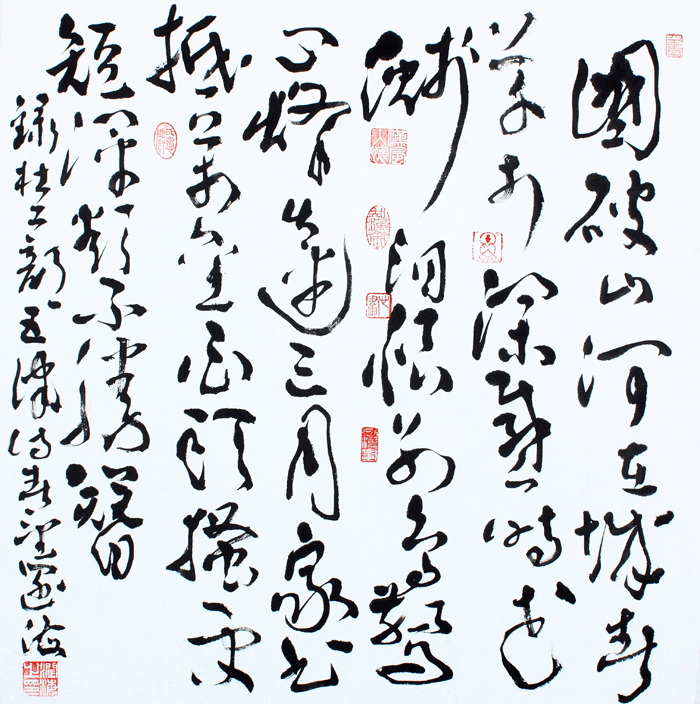 國破山河在城春
草木深感時花
濺泪恨别鳥驚
心烽火連三月家書
抵萬金白頭搔更
短渾欲不勝簪
録杜工部五律詩春望